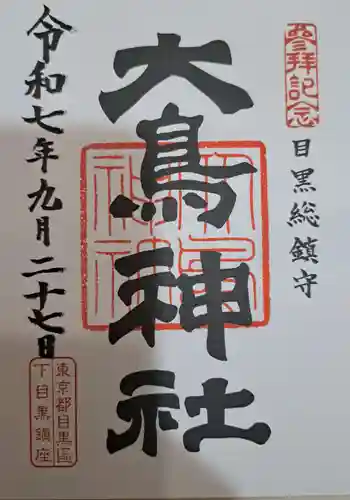 參拜記念
目黒総鎮守
大鳥神社
令和七年九月二十七日
東京都目黒区
下目黒鎮座